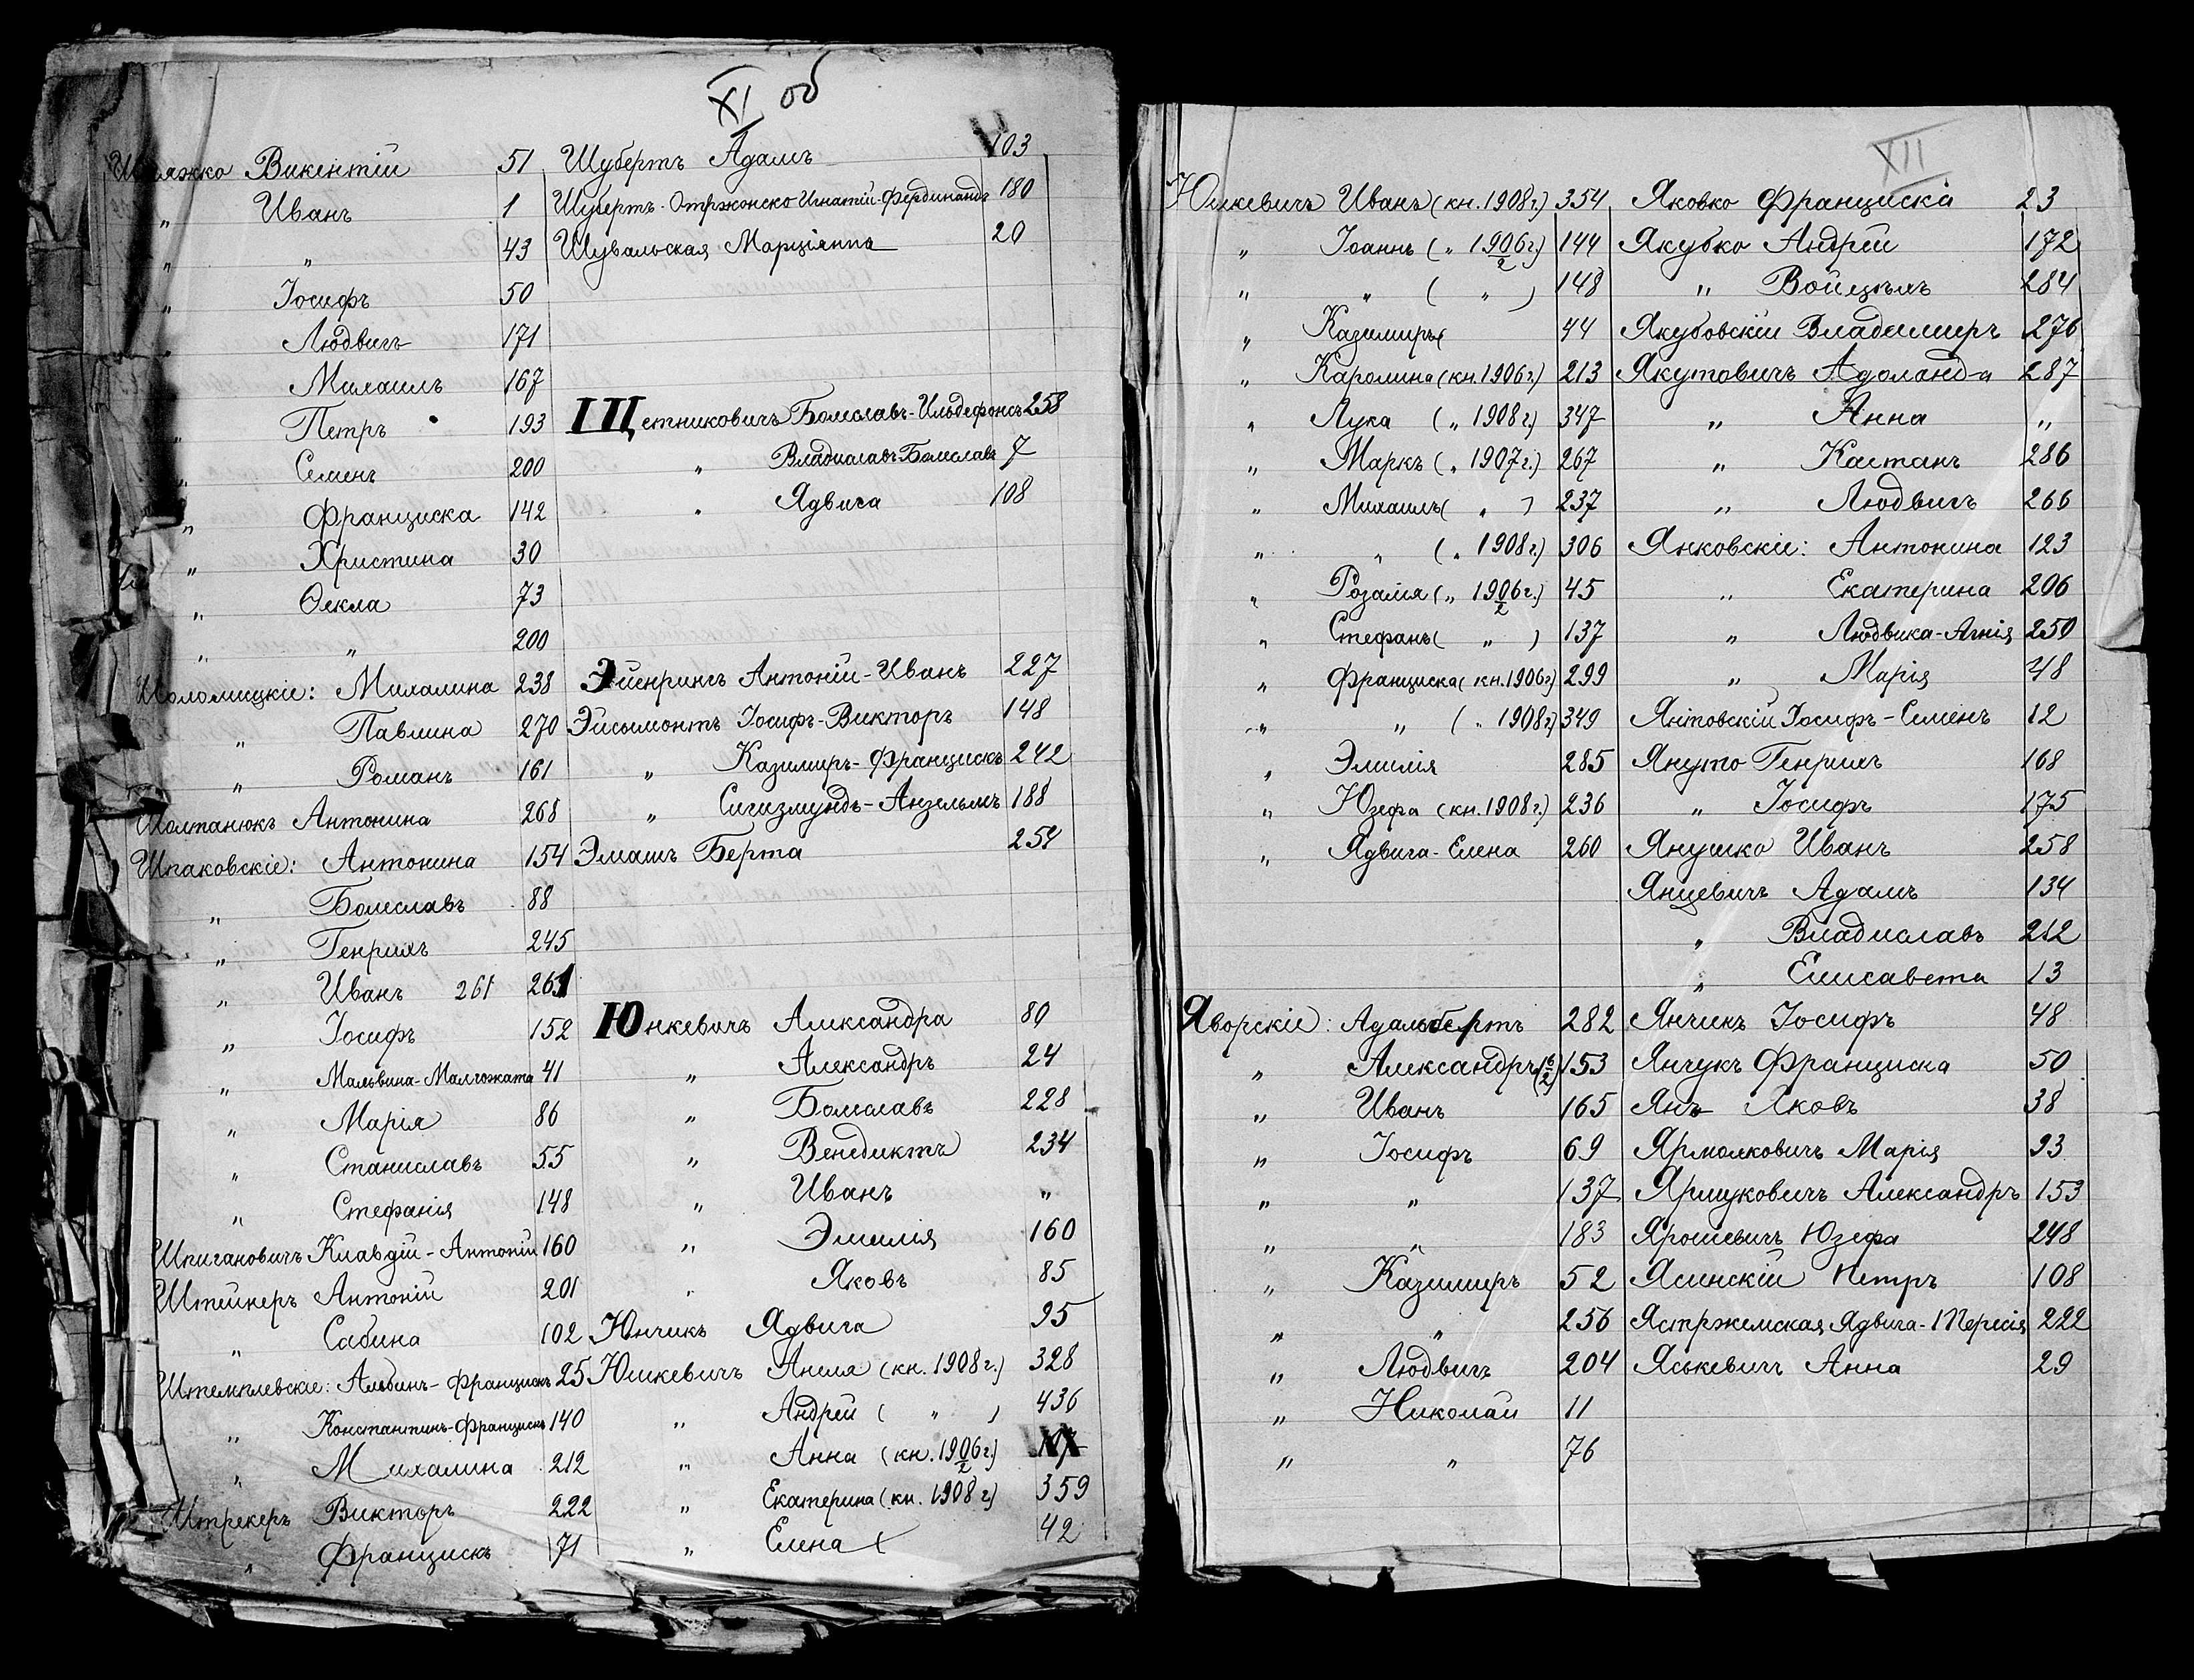 XI об
Викентій 51
" Иванъ 1
" " 43
" Іосифъ 50
" Людвигъ 171
Михаилъ 167
" Петръ 193
" Семенъ 200
" Франциска 142
" Христина 30
" Ѳекла 73
" " 200
Шоломицкіе: Михалина 238
" Павлина 270
" Романъ 161
Шолтанюкъ Антонина 268
Шпаковскіе: Антонина 154
" Болеславъ 88
" Генрихъ 245
" Иванъ 261 261
" Іосифъ 152
" Мальвина-Малгожата 41
" Марія 86
" Станиславъ 55
" Стефанія 148
Шпигановичъ Клавдій-Антоній 160
Штейнеръ Антоній 201
" Сабина 102
Штемплевскіе: Альбинъ-Францискъ 25
" Константинъ-Францискъ 140
" Михалина 212
Штрекеръ Викторъ 222
" Францискъ 71
Шубертъ Адамъ 103
Шубертъ-Отржонско Игнатій-Фердинандъ 180
Шувальская Марціянна 20
Щетниковичъ Болеславъ-Ильдефонсъ 258
" Владиславъ-Болеславъ 7
" Ядвига 108
Эйенрингъ Антоній-Иванъ 227
Эйсымонтъ Іосифъ-Викторъ 148
" Казимиръ-Францискъ 242
" Сигизмундъ-Анзельмъ 188
Эмашъ Берта 254
Юнкевичъ Александра 80
" Александръ 24
" Болеславъ 228
" Венедиктъ 234
" Иванъ "
" Эмилія 160
" Яковъ 85
Юнчикъ Ядвига 95
Юшкевичъ Анеля (кн. 1908 г.) 328
" Андрей ( " ) 436
" Анна (кн. 1906 г./2)
" Екатерина (кн. 1908 г.) 359
" Елена ( 42
XII
Юшкевичъ Иванъ (кн. 1908 г.) 354
" Іоаннъ ( " 1906 г./2) 144
" " ( " ) 148
" Казимиръ ( 44
" Каролина (кн. 1906 г.) 213
" Лука ( " 1908 г.) 347
" Маркъ ( " 1907 г.) 267
" Михаилъ ( " ) 237
" " ( " 1908 г.) 306
" Розалія ( " 1906 г./2) 45
" Стефанъ ( " ) 137
" Франциска (кн. 1906 г.) 299
" " ( " 1908 г.) 349
" Эмилія 285
" Юзефа (кн. 1908 г.) 236
" Ядвига-Елена 260
Яворскіе: Адальбертъ 282
" Александръ (6/2) 153
" Иванъ 165
" Іосифъ 69
" " 137
" " 183
" Казимиръ 52
" " 256
" Людвигъ 204
" Николай 11
" " 76
Яковко Франциска 23
Якубко Андрей 172
" Войцехъ 284
Якубовскій Владимиръ 276
Якутовичъ Адоланд-а 287
" Анна "
" Каетанъ 286
" Людвигъ 266
Янковскіе: Антонина 123
" Екатерина 206
" Людвика-Агнія 250
" Марія 48
Янтовскій Іосифъ-Семенъ 12
Януто Генрихъ 168
" Іосифъ 175
Янушко Иванъ 258
Янцевичъ Адамъ 134
" Владиславъ 212
" Елисавета 13
Янчикъ Іосифъ 48
Янчукъ Франциска 50
Янъ Яковъ 38
Ярмолковичъ Марія 93
Ярмуковичъ Александръ 153
Ярошевичъ Юзефа 248
Ясинскій Петръ 108
Ястржемская Ядвига-Тересія 222
Яськевичъ Анна 29